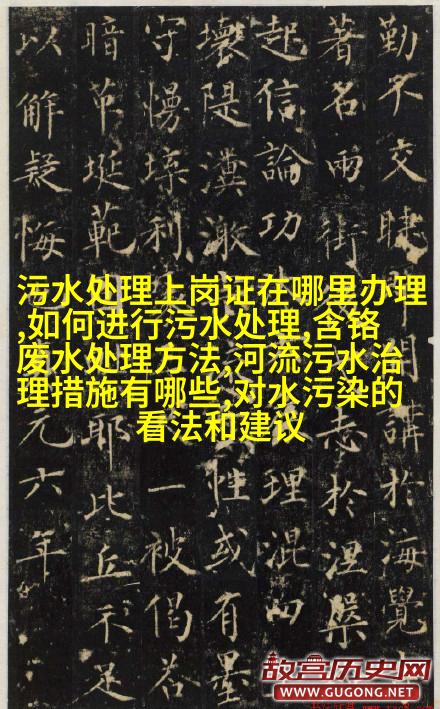 污水处理上岗证在哪里办理
,如何进行污水处理,含铬
废水处理方法,河流污水治
理措施有哪些,对水污染的
看法和建议
勤不交睫 講於海覺
著名兩街 志於涅槃
起信論功 理混四
壞隄 激 性或有墨
守慢 利 一被偈若
暗 埏範 耶比丘不足
以解疑悔 元六年
故宫历史网
WWW.GUGONG.NET